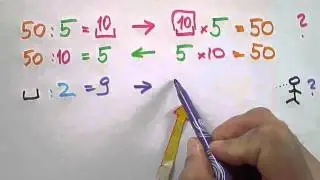 50 : 5 = 10 → 10 × 5 = 50 ?
50 : 10 = 5 ← 5 × 10 = 50
⎵ : 2 = 9 → ?